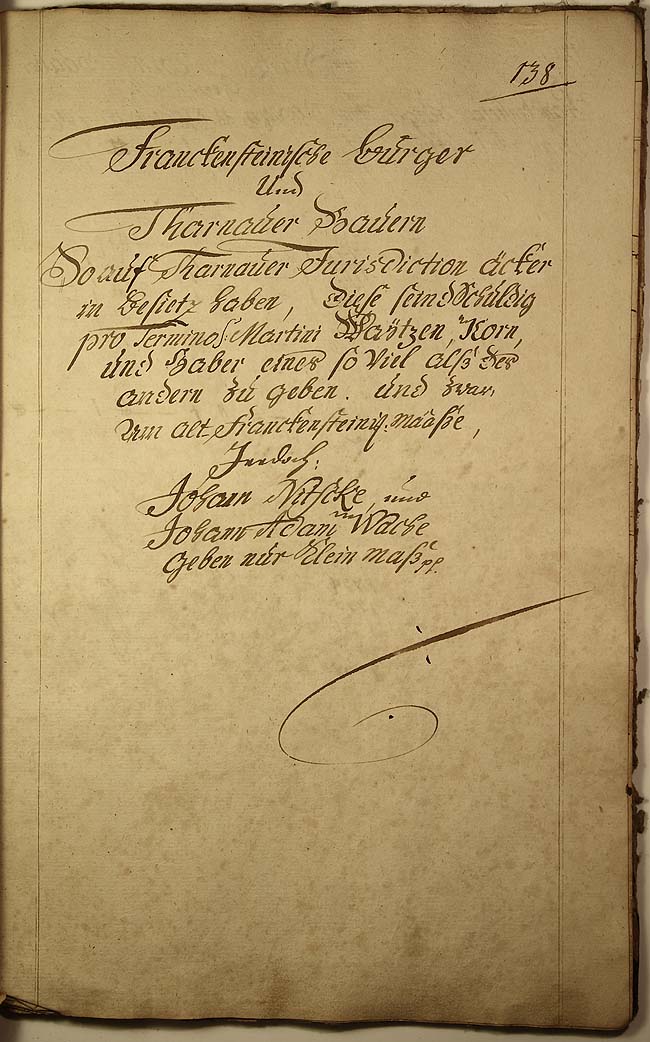 138
Franckensteinische Bürger
Und
Tharnauer Bauern
So auf Tharnauer Jurisdiction äcker
in Besietz haben, Diese seind Schuldig
pro Termino S: Martini Waÿtzen, Korn,
und Haber eines so Viel alß des
andern zu geben. und zwar,
Um alt Franckensteinis. Määße,
Jeedoch:
Johann Nitschke, und
Johann Adam Wache
Geben nür Klein maß pp.